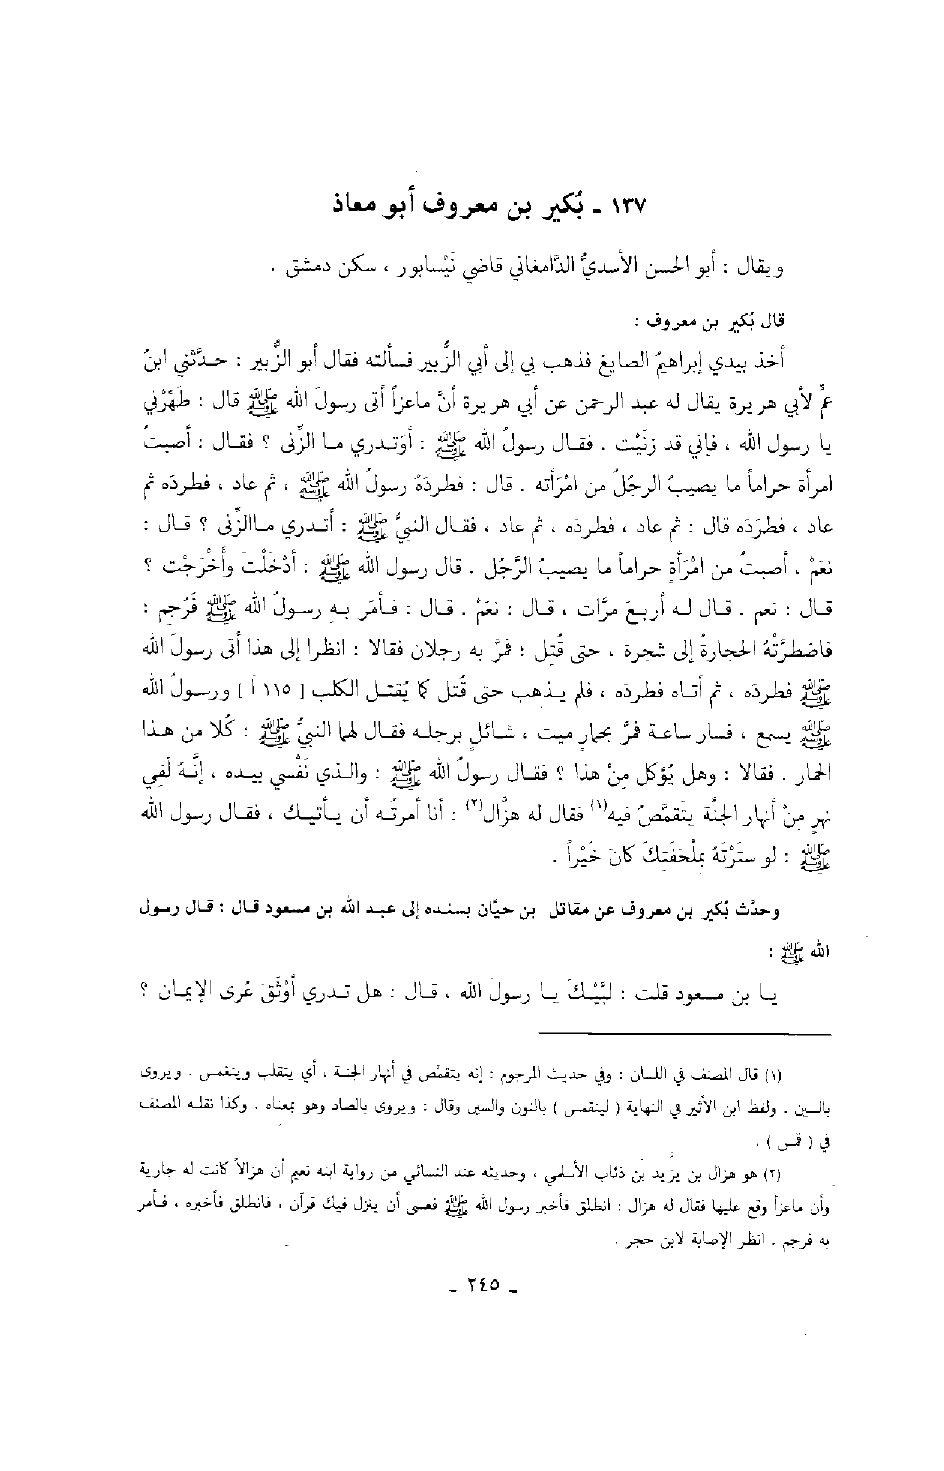 ١٣٧ ـ بُكير بن معروف أبو معاذ
ويقال : أبو الحسن الأسديُّ الدَّامغاني قاضي نَيْسابور ، سكن دمشق .
قال بُكير بن معروف :
أخذ بيدي إبراهيمُ الصايغ فذهب بي إلى أبي الزُّبير فسألته فقال أبو الزُّبير : حدَّثني ابنُ
عمٍّ لأبي هريرة يقال له عبد الرحمن عن أبي هريرة أنَّ ماعزاً أتى رسولَ الله ﷺ قال : طَهِّرْني
يا رسول الله ، فإني قد زنَيْت . فقال رسولُ الله ﷺ : أوَتدري ما الزِّنى ؟ فقال : أصبتُ
امرأة حراماً ما يصيبُ الرجُلُ من امْرَأته . قال : فطردَهُ رسولُ الله ﷺ ، ثم عاد ، فطردَه ثم
عاد ، فطرَدَه قال : ثم عاد ، فطرده ، ثم عاد ، فقال النبيُّ ﷺ : أتدري ماالزِّنى ؟ قال :
نَعَمْ ، أصبتُ من امْرَأةٍ حراماً ما يصيبُ الرَّجُل . قال رسول الله ﷺ : أدْخَلْتَ وأخْرَجْت ؟
قال : نعم . قال له أربعَ مرَّات ، قال : نعَمْ . قال : فأمَر به رسولُ الله ﷺ فَرُجم :
فاضطرَّتْهُ الحجارةُ إلى شجرة ، حتى قُتِل ؛ فمرَّ به رجلان فقالا : انظرا إلى هذا أتى رسولَ الله
ﷺ فطردَه ، ثم أتاه فطردَه ، فلم يذهب حتى قُتل كما يُقتل الكلب [ ١١٥ أ ] ورسولُ الله
ﷺ يسمع ، فسار ساعة فمرَّ بحمارٍ ميت ، شائلٍ برجله فقال لهما النبيُّ ﷺ : كُلا من هذا
الحمار . فقالا : وهل يُؤكل مِنْ هذا ؟ فقال رسولُ الله ﷺ : والذي نَفْسي بيده ، إنَّهُ لَفِي
نهرٍ مِنْ أنهار الجنَّة يتقمَّصُ فيه(١) فقال له هزَّال(٢) : أنا أمرتُه أن يأتيك ، فقال رسول الله
ﷺ : لو سَتَرْتَهُ بِمِلْحَفَتِكَ كانَ خَيْراً .
وحدَّث بُكير بن معروف عن مقاتل بن حيَّان بسنده إلى عبد الله بن مسعود قال : قال رسول
الله ﷺ :
يا بن مسعود قلت : لَبَّيْكَ يا رسولَ الله ، قال : هل تدري أوْثَقَ عُرى الإيمان ؟
(١) قال المصنف في اللسان : وفي حديث المرجوم : إنه يتقمَّص في أنهار الجنة ، أي يتقلب وينغمس . ويروى
بالسين . ولفظ ابن الأثير في النهاية ( لينقمس ) بالنون والسين وقال : ويروى بالصاد وهو بمعناه . وكذا نقله المصنف
في ( قمس ) .
(٢) هو هزال بن يزيد بن ذئاب الأسلمي ، وحديثه عند النسائي من رواية ابنه نعيم أن هزالاً كانت له جارية
وأن ماعزاً وقع عليها فقال له هزال : انطلق فأخبر رسول الله ﷺ فعسى أن ينزل فيك قرآن ، فانطلق فأخبره ، فأمر
به فرجم . انظر الإصابة لابن حجر .
ـ ٢٤٥ ـ